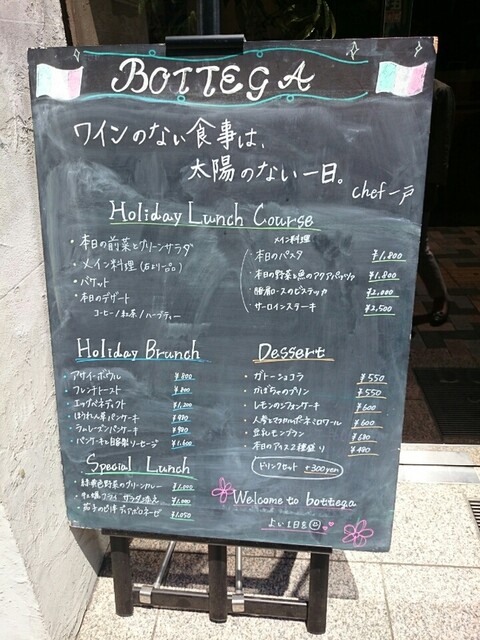 BOTTEGA
ワインのない食事は、
太陽のない一日。
chef 一戸
Holiday Lunch Course
・本日の前菜とグリーンサラダ
・メイン料理(右より一品)
・バケット
・本日のデザート
コーヒー/紅茶/ハーブティー
メイン料理
・本日のパスタ ¥1,800
・本日の野菜と魚のアクアパッツァ ¥1,800
・豚肩ロースのビステッカ ¥2,000
・サーロインステーキ ¥2,500
Holiday Brunch
・アサイーボウル ¥800
・フレンチトースト ¥800
・エッグベネディクト ¥1,200
・ほうれん草パンケーキ ¥980
・ラムレーズンパンケーキ ¥980
・パンケーキと自家製ソーセージ ¥1,600
Special Lunch
・緑黄色野菜のグリーンカレー ¥1,000
フライ サラダ添え ¥1,000
・茄子のピリ辛 ¥1,050
Dessert
・ガトーショコラ ¥550
・かぼちゃのプリン ¥550
・レモンのシフォンケーキ ¥600
・人参とマスカルポーネのロワール ¥600
・豆乳モンブラン ¥680
・本日のアイス2種盛り ¥480
ドリンクセット +300yen
Welcome to bottega
よい1日を